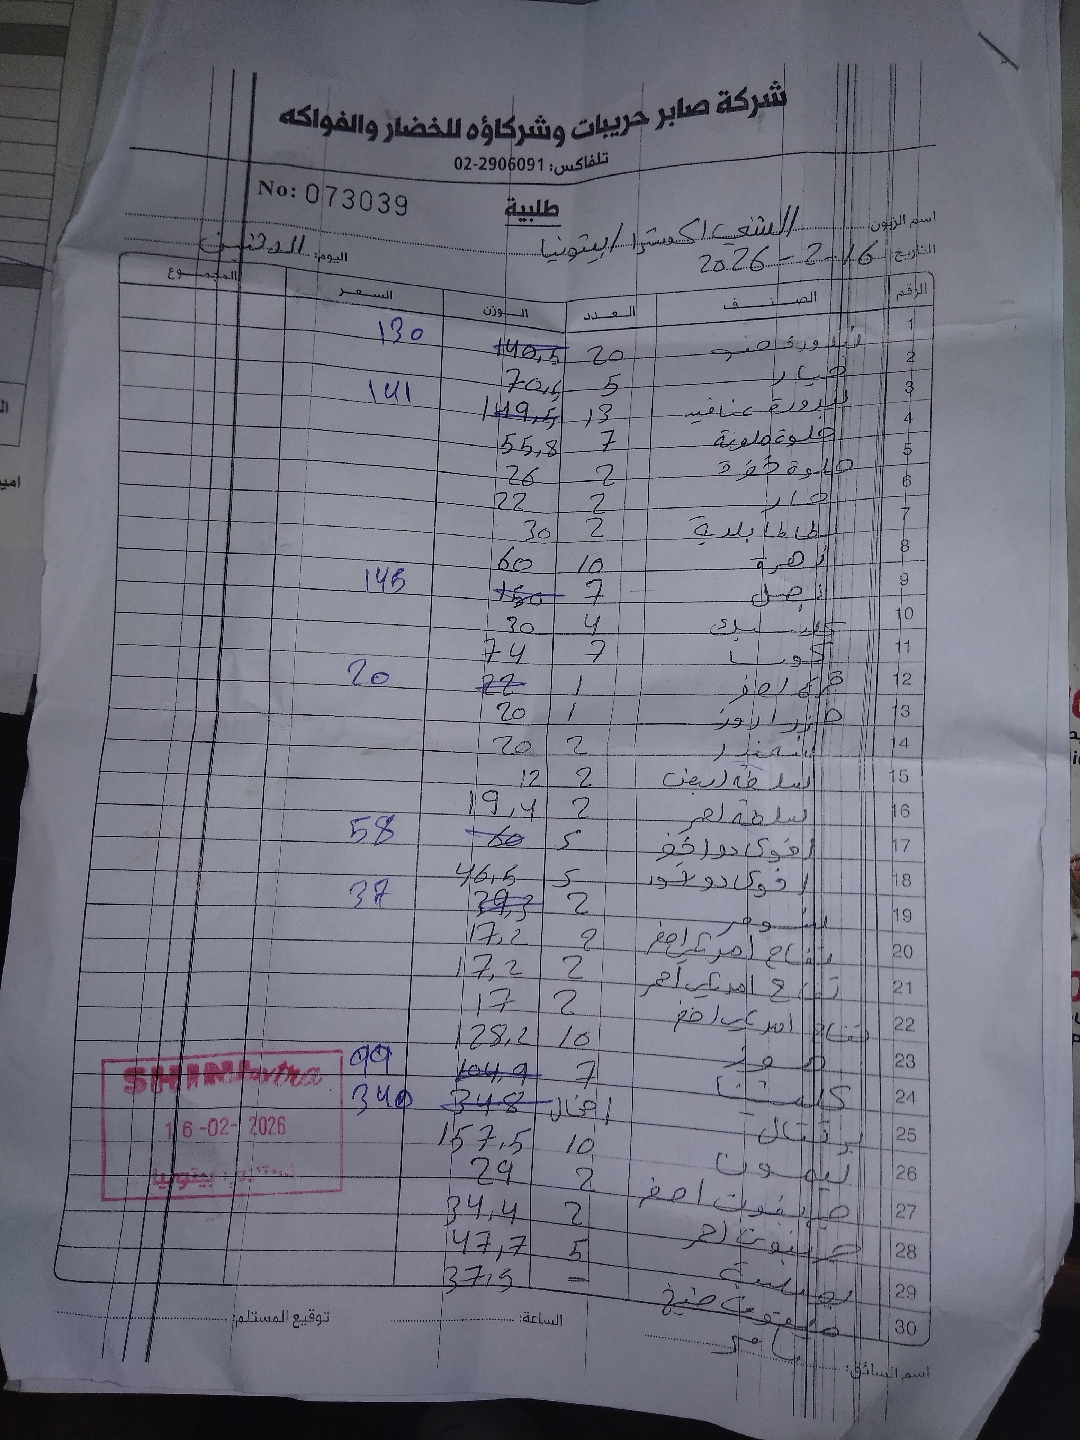 شركة صابر حريبات وشركاؤه للخضار والفواكه
تلفاكس: 02-2906091
No: 073039
طلبية
اسم الزبون: الشني اكسترا / بيتونيا
التاريخ: 16-2-2026 اليوم: الاثنين
الرقم الصنف العدد الوزن السعر المجموع
1 بندورة 20 140,5 130
2 خيار 5 70,5
3 بندورة عناقيد 13 149,5 141
4 حلوة ملونة 7 55,8
5 حلوة 2 26
6 حار 2 22
7 بطاطا بلدية 2 30
8 زهرة 10 60
9 بصل 7 150 145
10 4 30
11 كوسا 7 74
12 اصفر 1 22 20
13 جزر 1 20
14 شمندر 2 20
15 سلطة ابيض 2 12
16 سلطة احمر 2 19,4
17 افوكادو اخضر 5 60 58
18 افوكادو 5 46,5
19 بومر 2 39,3 37
20 تفاح امريكي اصفر 2 17,2
21 تفاح امريكي احمر 2 17,2
22 تفاح امريكي اخضر 2 17
23 موز 10 128,2
24 كلمنتينا 7 104,9 99
25 برتقال 348 340
26 ليمون 10 157,5
27 جريفوت اصفر 2 29
28 جريفوت احمر 2 34,4
29 بوملي 5 47,7
30 ملفوف - 37,5
SHINI extra
16-02-2026
بيتونيا
توقيع المستلم: الساعة: اسم السائق: